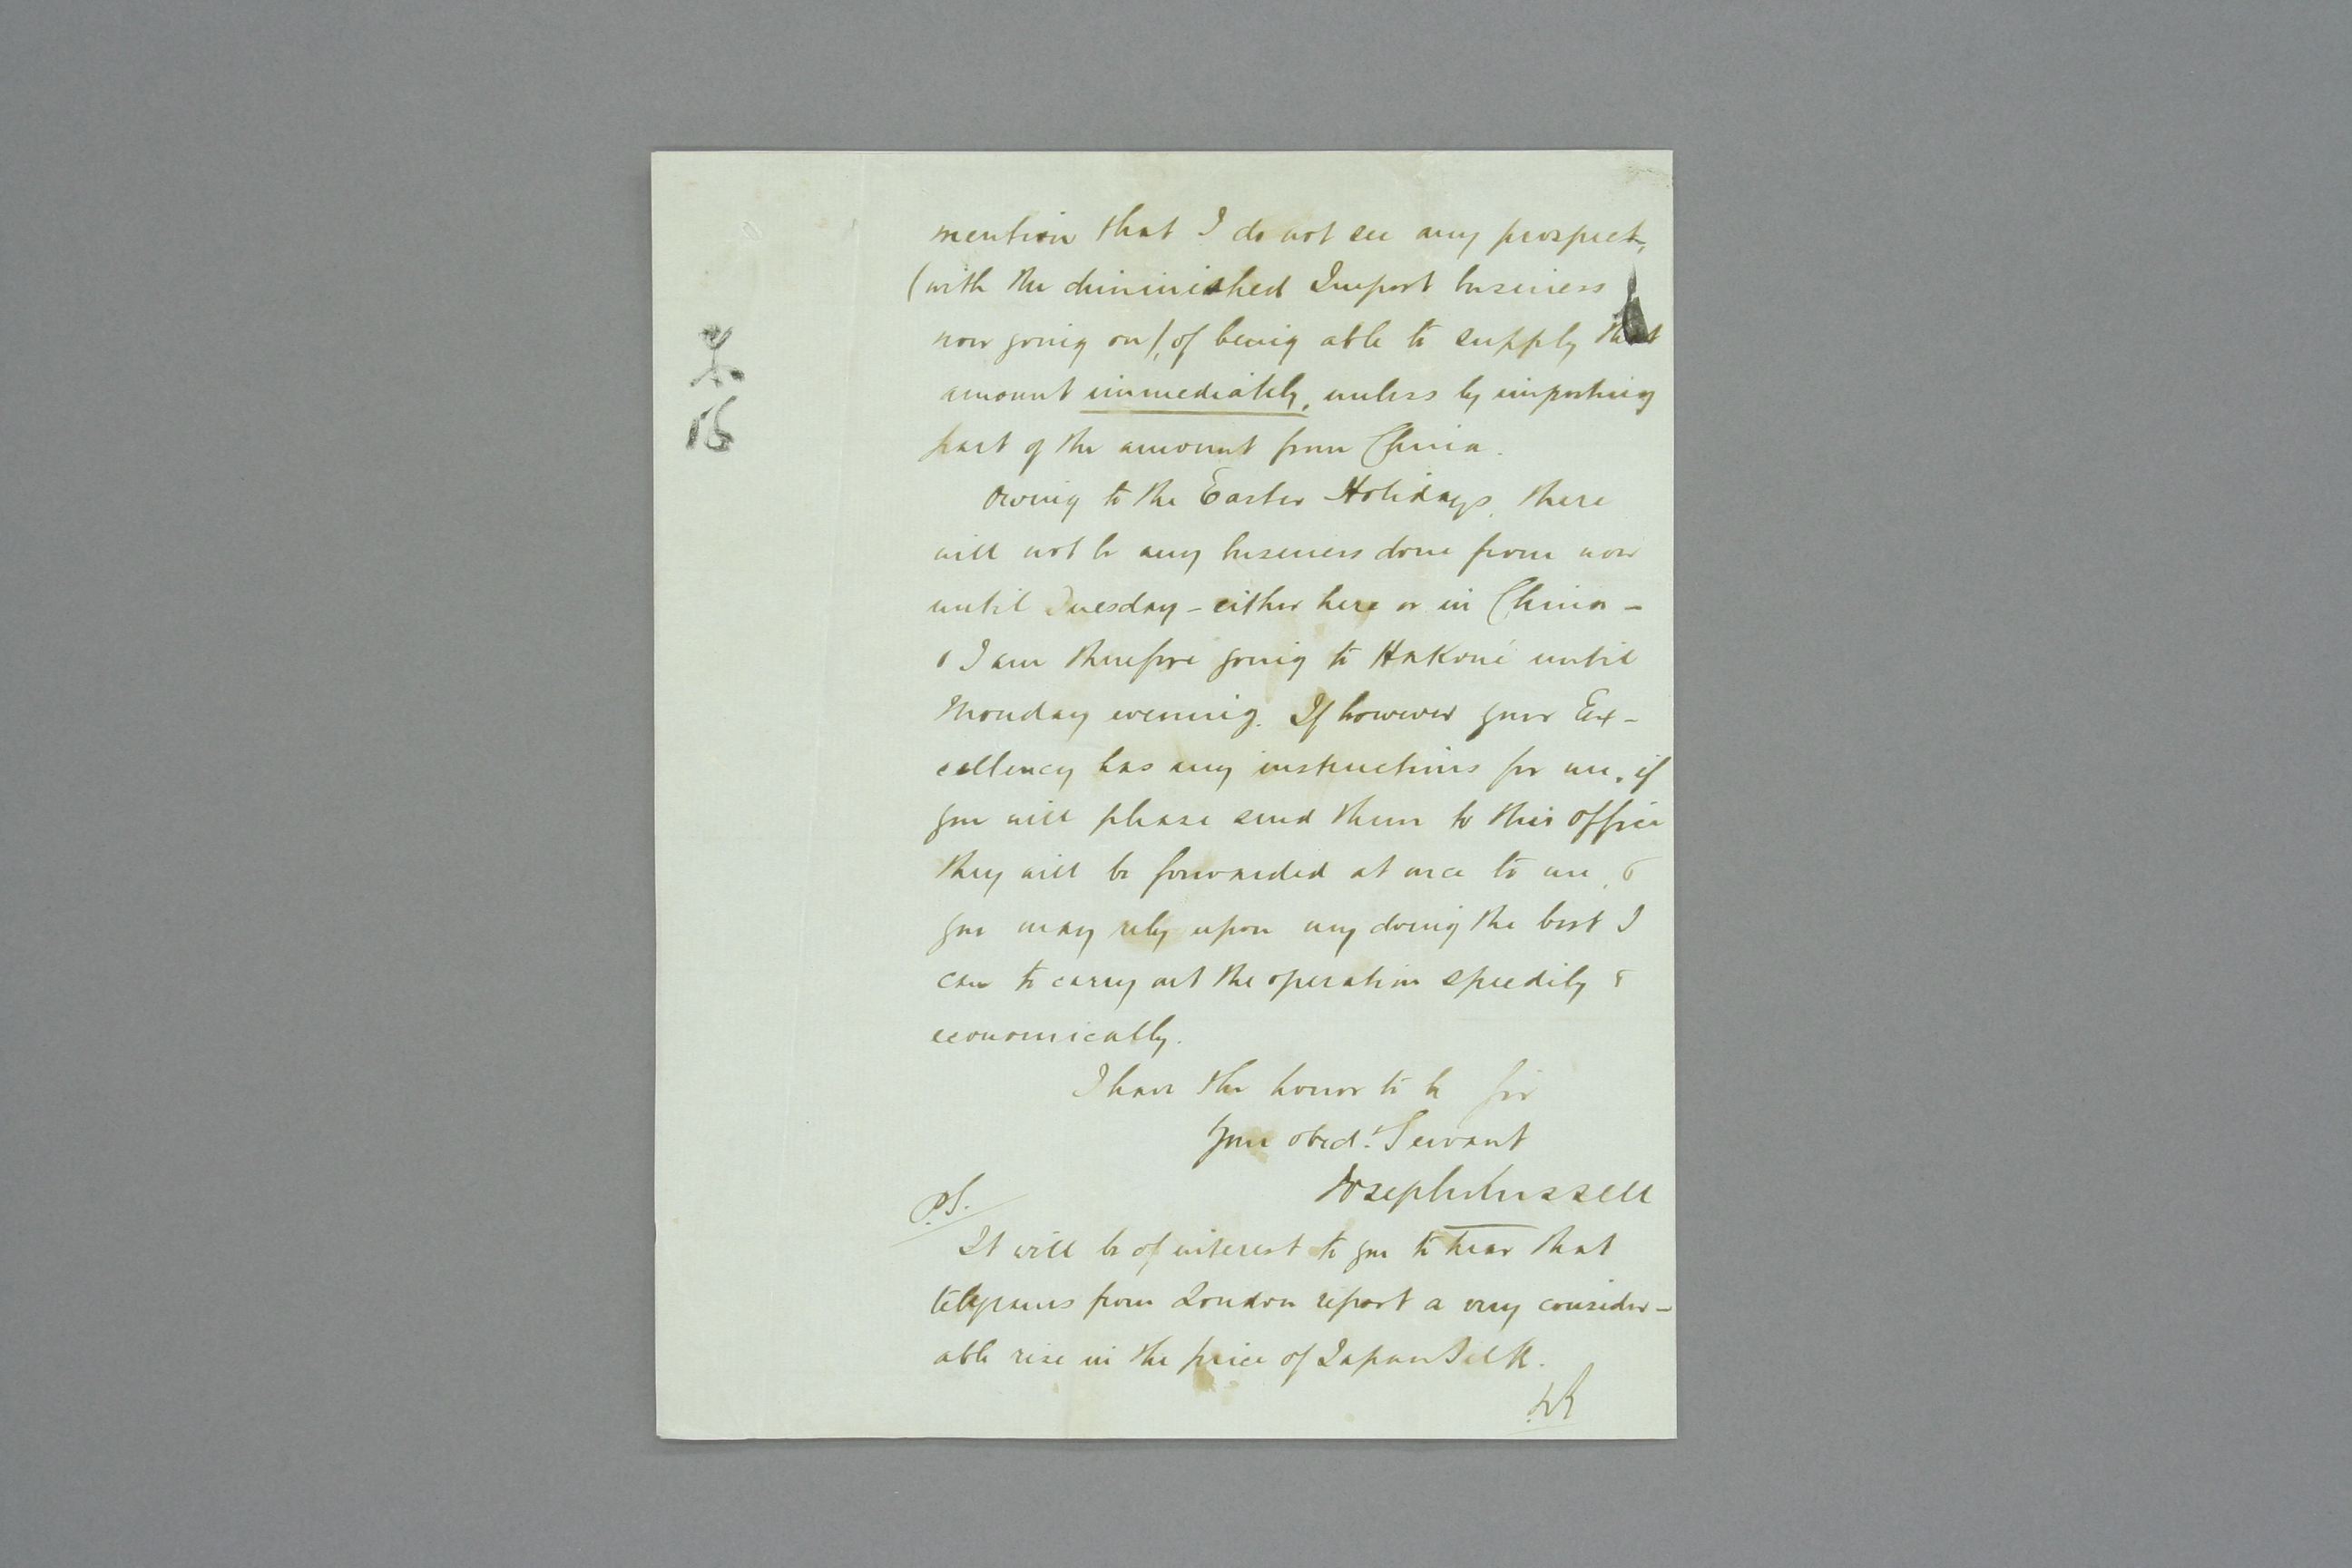 mention that I do not see any prospect,
(with the diminished Import business
now going on), of being able to supply that
amount immediately, unless by importing
part of the amount from China.
Owing to the Easter Holidays, there
will not be any business done from now
until Tuesday - either here or in China -
& I am therefore going to Hakoné until
Monday evening. If however your Ex-
cellency has any instructions for me, if
you will please send them to this office
they will be forwarded at once to me, &
you may rely upon my doing the best I
can to carry out the operation speedily &
economically.
I have the honor to be Sir
Your obedt. Servant
Joseph
P.S.
It will be of interest to you to hear that
telegrams from London report a very consider-
able rise in the price of Japan Silk.